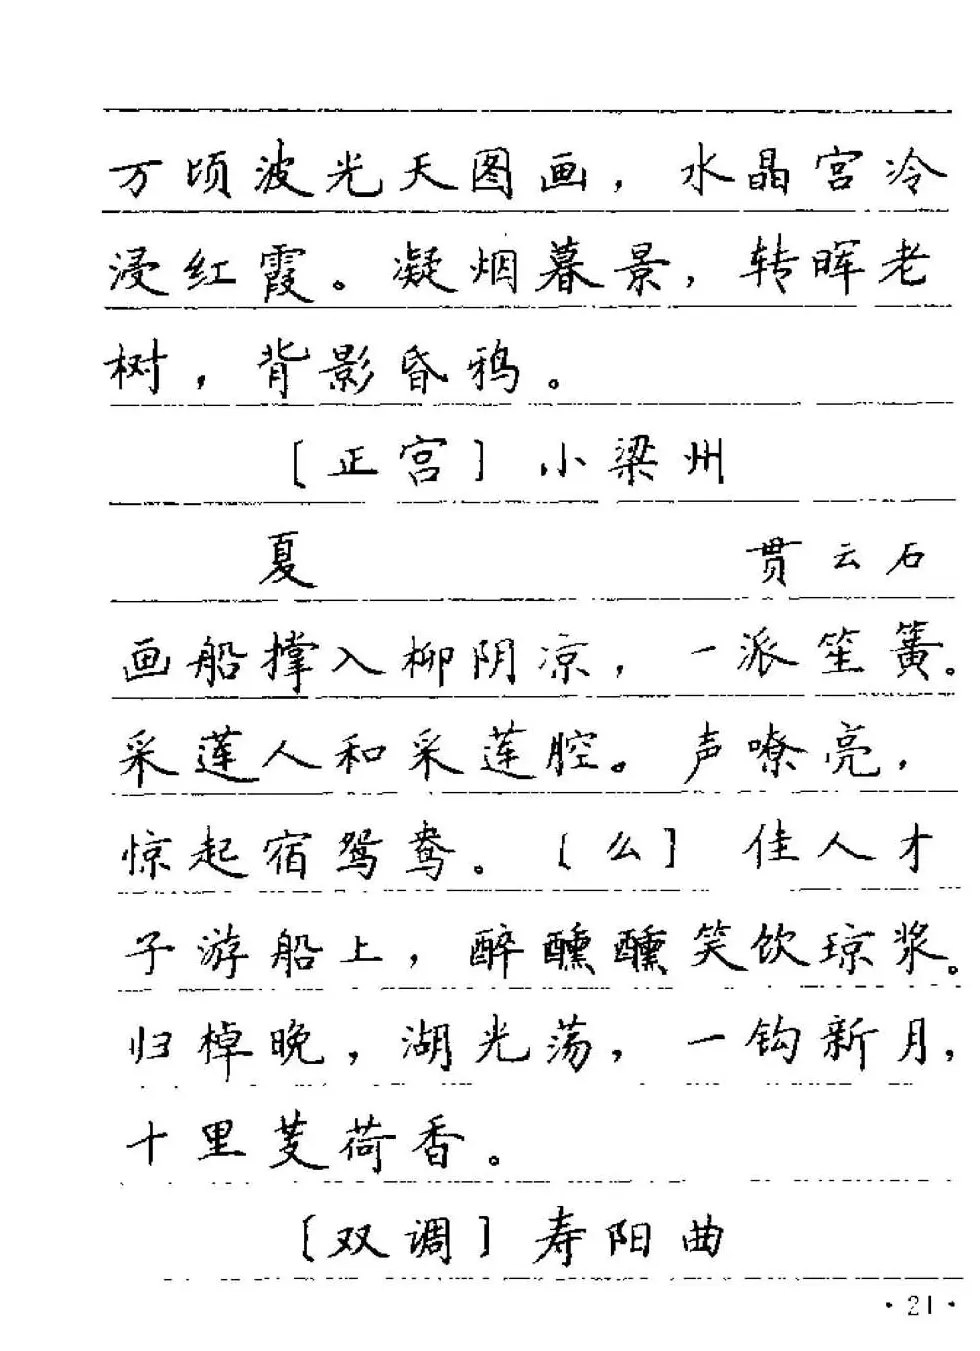 万顷波光天图画，水晶宫冷
浸红霞。凝烟暮景，转晖老
树，背影昏鸦。
［正宫］小梁州
夏 贯云石
画船撑入柳阴凉，一派笙簧。
采莲人和采莲腔。声嘹亮，
惊起宿鸳鸯。［么］佳人才
子游船上，醉醺醺笑饮琼浆。
归棹晚，湖光荡，一钩新月，
十里芰荷香。
［双调］寿阳曲
·21·